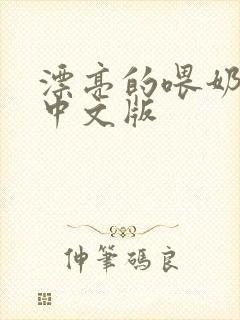 漂亮的喂奶
中文版
仲筆碼良